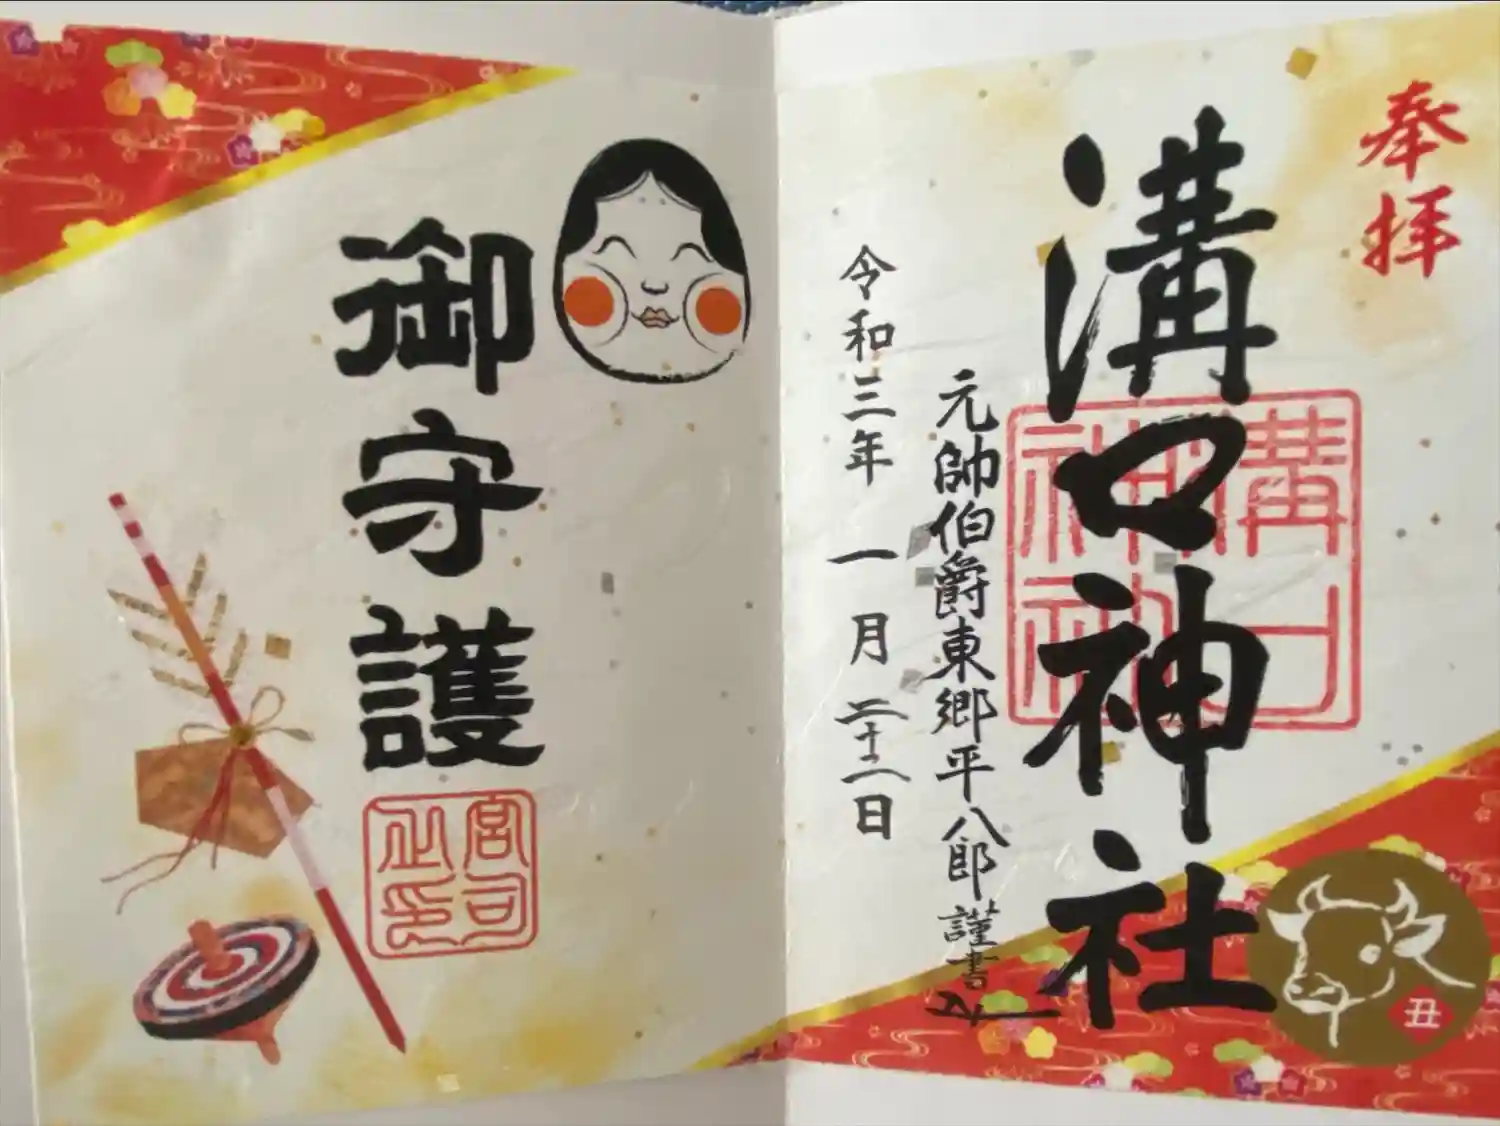 奉拝
溝口神社
溝口神社
元帥伯爵東郷平八郎謹書
令和三年 一月 二十二日
丑
御守護
宮司之印